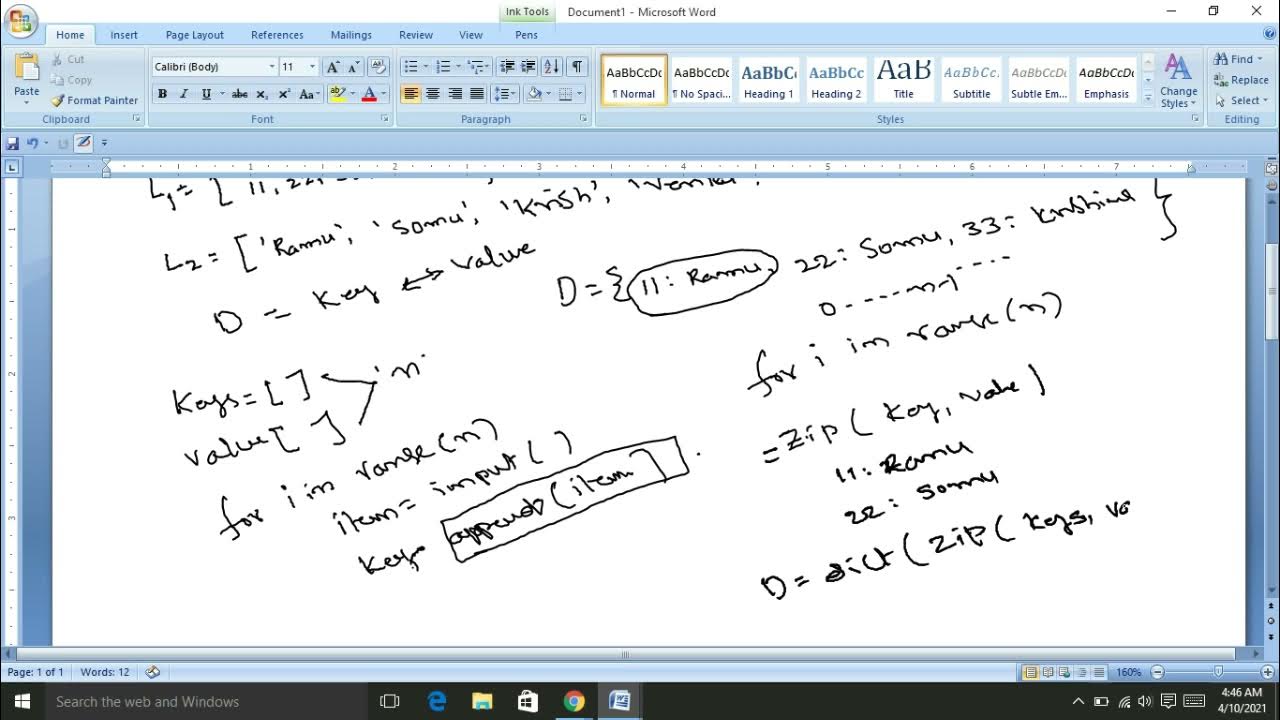 Ink Tools
Document1 - Microsoft Word
Home Insert Page Layout References Mailings Review View Pens
Paste
Cut
Copy
Format Painter
Clipboard
Calibri (Body) 11
Font
Paragraph
AaBbCcDc AaBbCcDc AaBbCc AaBbCc AaB AaBbCc. AaBbCcDc AaBbCcDc
¶ Normal ¶ No Spaci... Heading 1 Heading 2 Title Subtitle Subtle Em... Emphasis
Styles
Change Styles
Find
Replace
Select
Editing
1 2 3 4 5 6 7
L1 = [ 11, 22,
L2 = ['Ramu', 'Somu', 'Krish',
D = Key ↔ Value
D = { 11: Ramu, 22: Somu, 33: Krishna }
0 ---- n-1
for i in range(n)
Keys = [ ] 'n'
value [ ]
for i in range(n)
item = input ( )
Key. append (item)
= Zip ( Key, value )
11: Ramu
22: Somu
D = dict ( Zip ( Keys, va
Page: 1 of 1 Words: 12
160%
Search the web and Windows
4:46 AM
4/10/2021